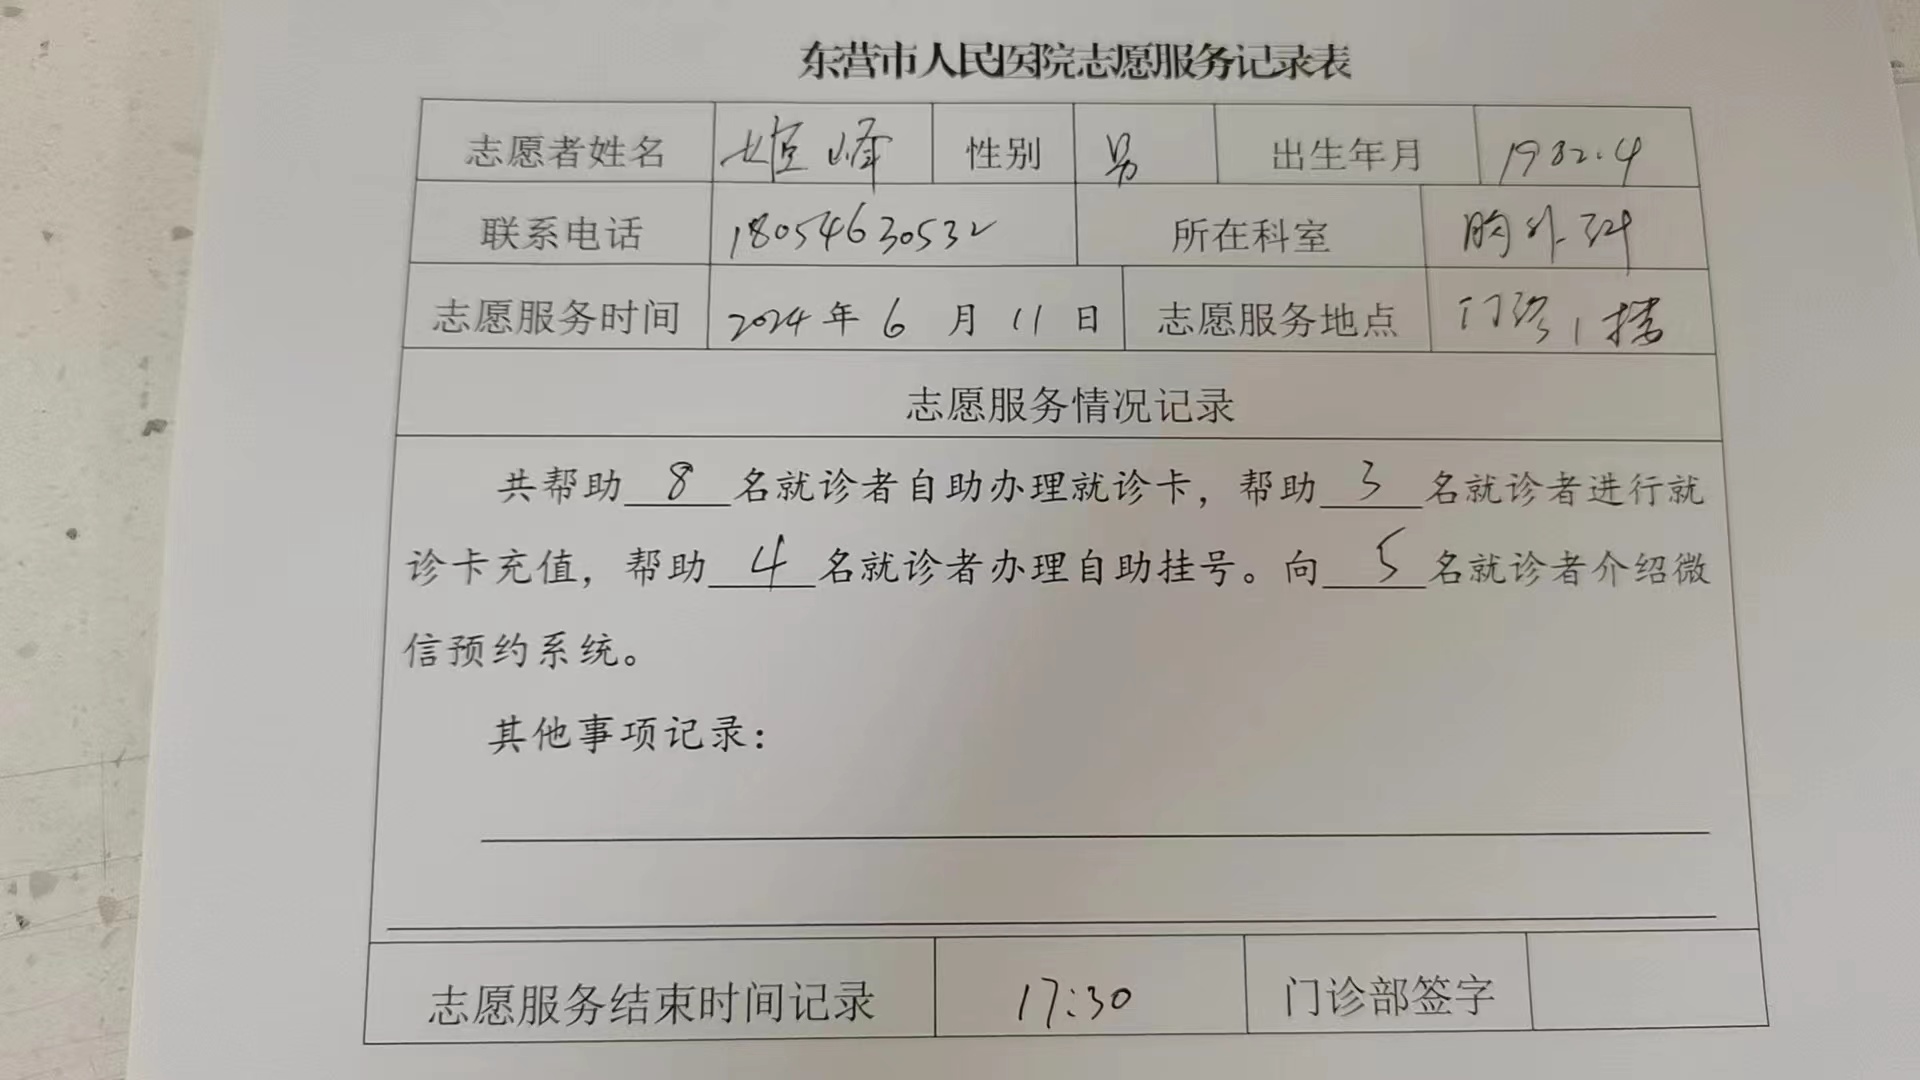 东营市人民医院志愿服务记录表
志愿者姓名 峰 性别 男 出生年月 1982.4
联系电话 18054630532 所在科室 胸外科
志愿服务时间 2024年 6 月 11 日 志愿服务地点 门诊1楼
志愿服务情况记录
共帮助 8 名就诊者自助办理就诊卡，帮助 3 名就诊者进行就
诊卡充值，帮助 4 名就诊者办理自助挂号。向 5 名就诊者介绍微
信预约系统。
其他事项记录：
志愿服务结束时间记录 17:30 门诊部签字